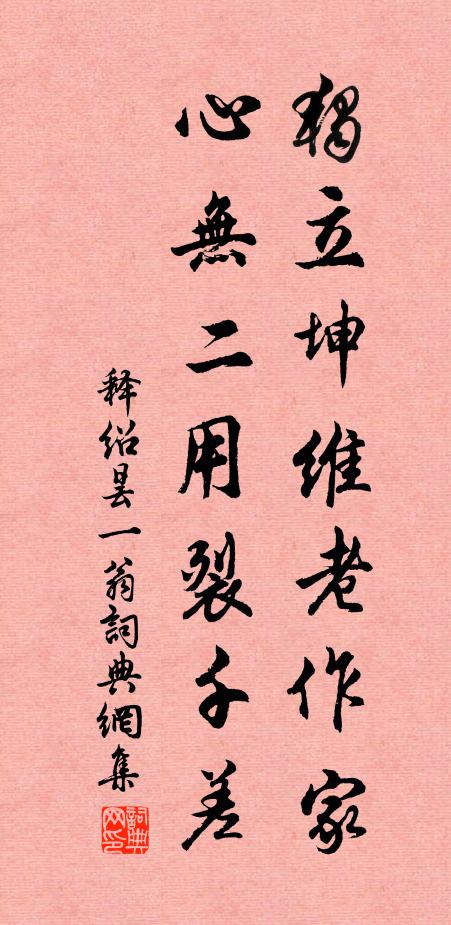 獨立坤維老作家
心無二用裂千差
释紹曇一翁詞典網集
詞典网印